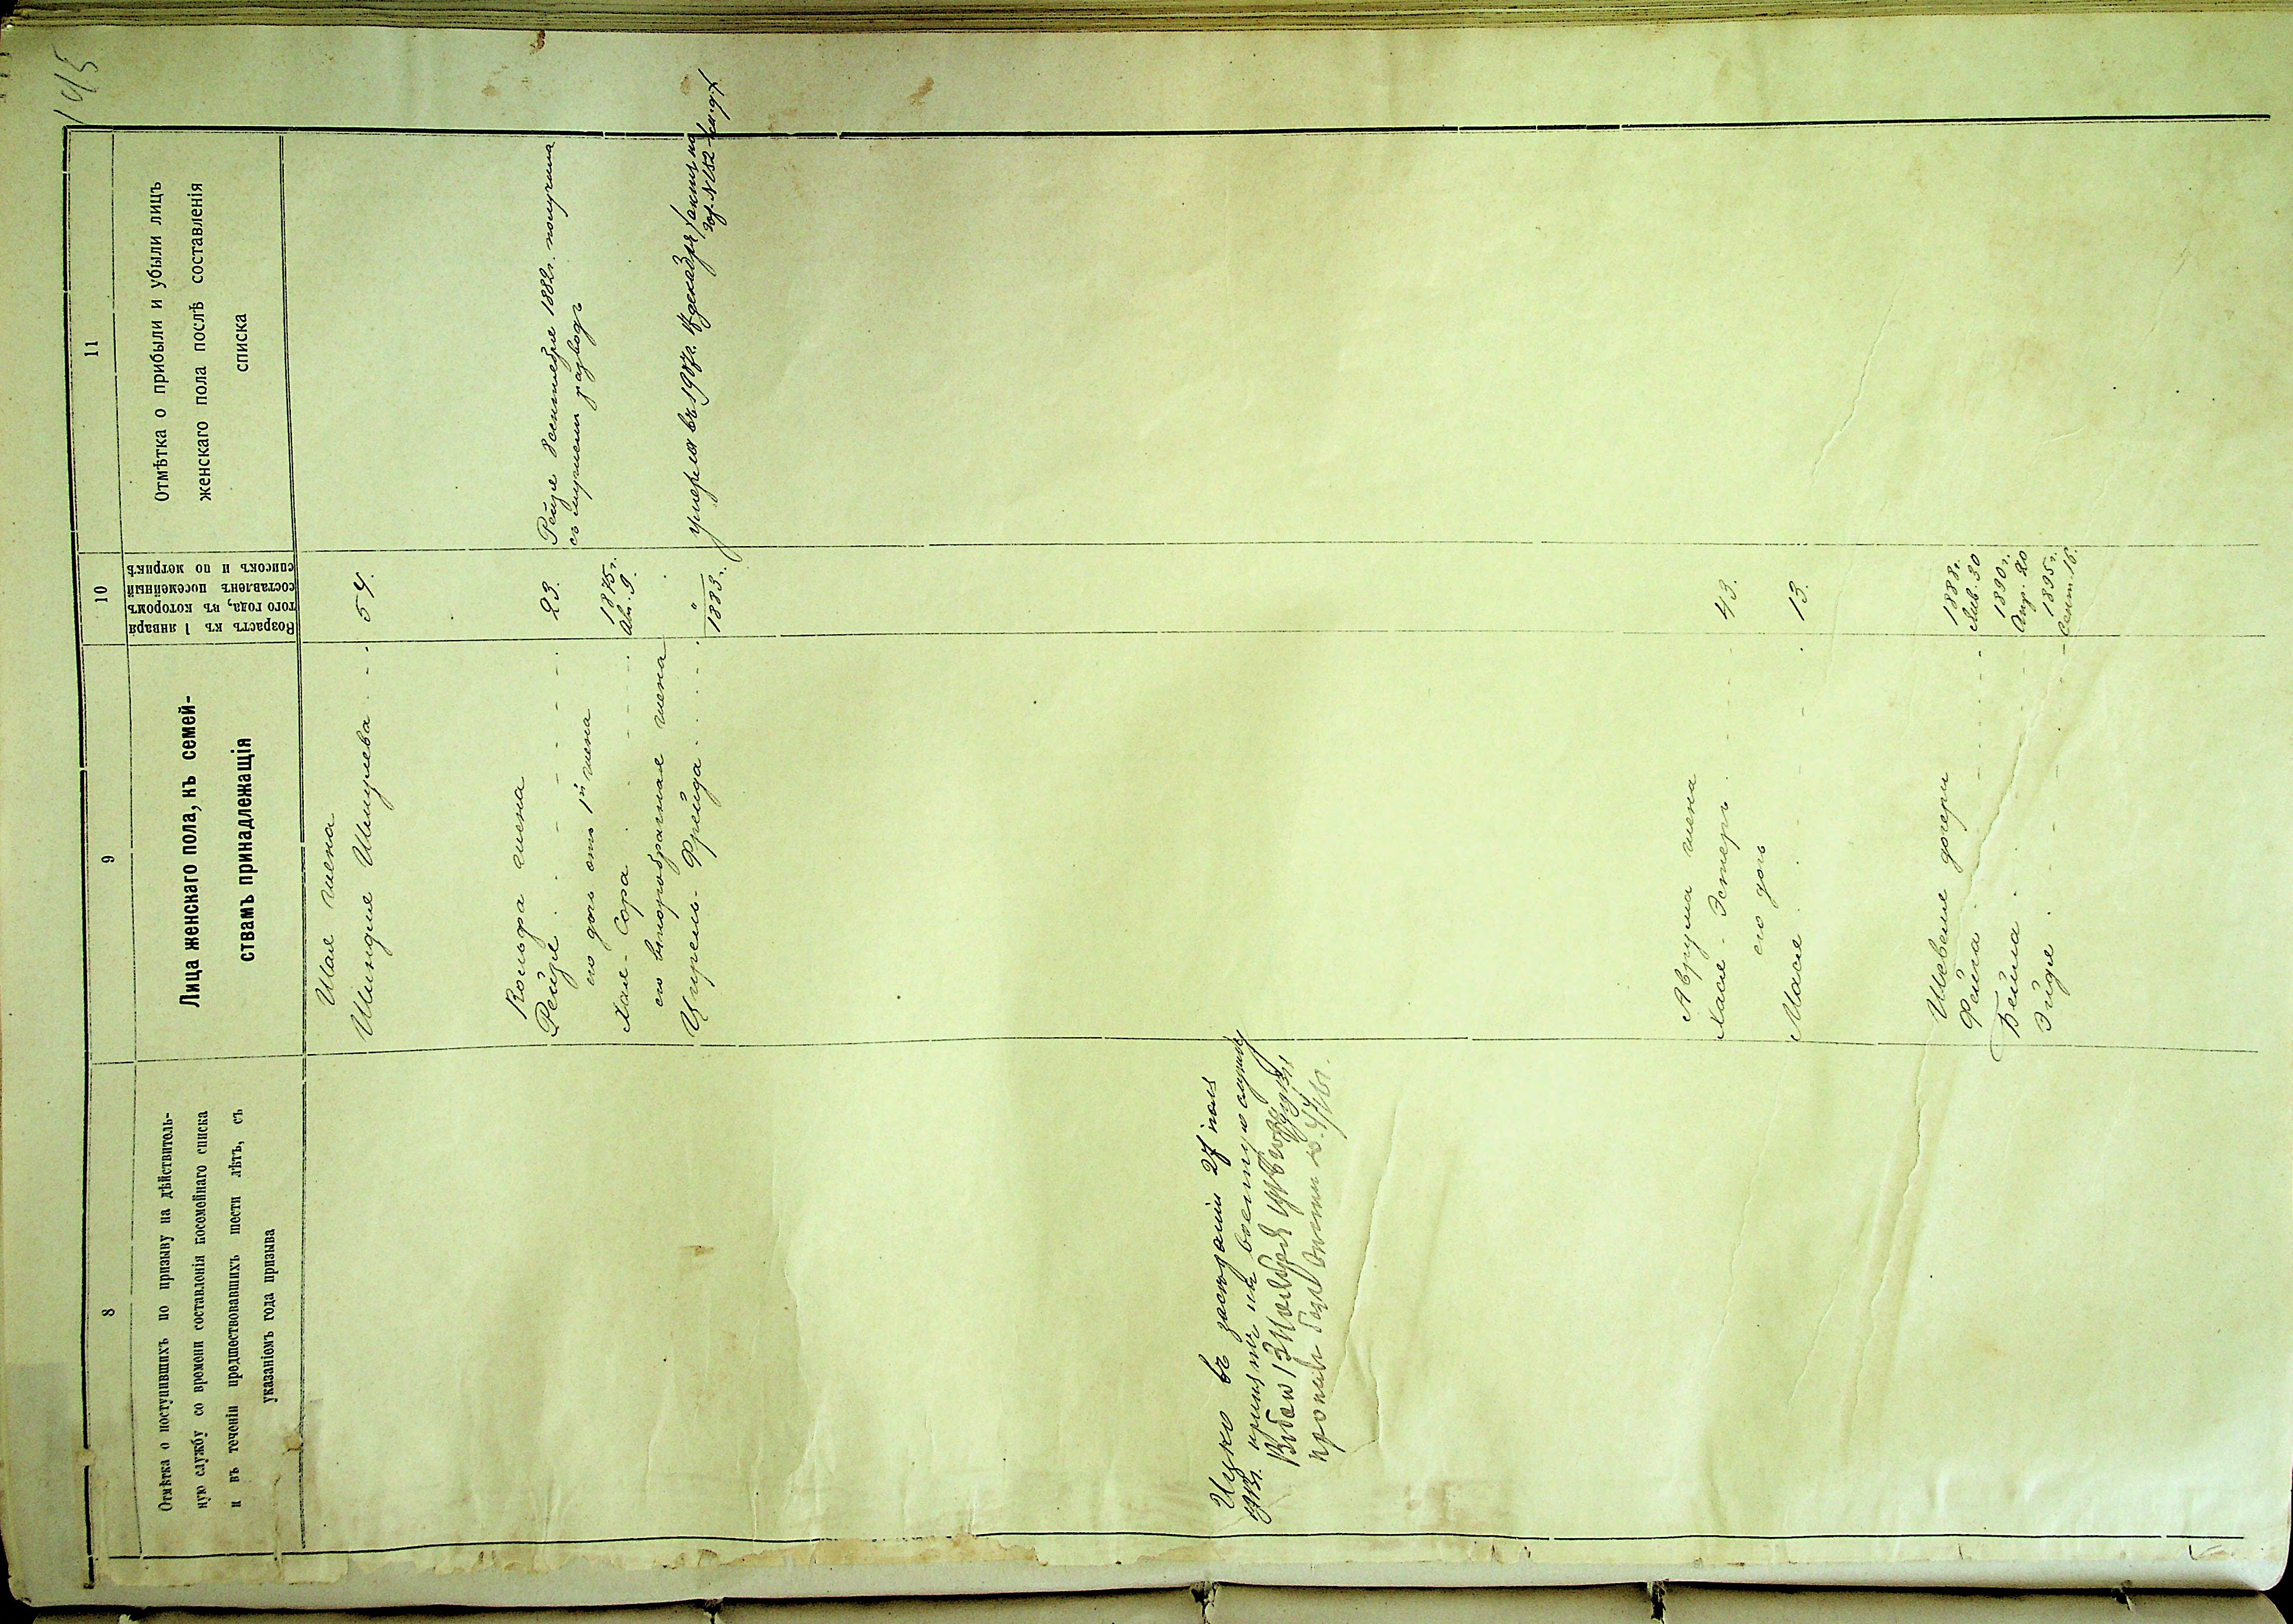 145
8
9
10
11
Отмѣтка о поступившихъ по призыву на дѣйствитель-
ную службу со времени составленія посемейнаго списка
и въ теченіи предшествовавшихъ шести лѣтъ, съ
указаніемъ года призыва
Лица женскаго пола, къ семей-
ствамъ принадлежащія
Возрастъ къ 1 января
того года, въ которомъ
составленъ посемейный
списокъ и по метрикѣ
Отмѣтка о прибыли и убыли лицъ
женскаго пола послѣ составленія
списка
Шая жена
Шиндля Шмулева 54.
жена
Рейзя 23. Рейзя 8 сентября 1882 г. получила
съ мужемъ разводъ
его дочь отъ 1й жена
Хая-Сора 1875 г.
Ав. 9.
его второбрачная жена
Цирель-Фрейда " 1883 г. умерла въ 1907 г. декабря
Ицко въ засѣданіи 27 іюля
принятъ на военную службу
13 Ноября
Аврума жена
Хася-Эстеръ 43.
его дочь
Мася 13.
дочери
Фейга 1888 г.
Янв. 30
Бейла 1890 г.
Апр. 20
Эйдя 1895 г.
Сент. 16.